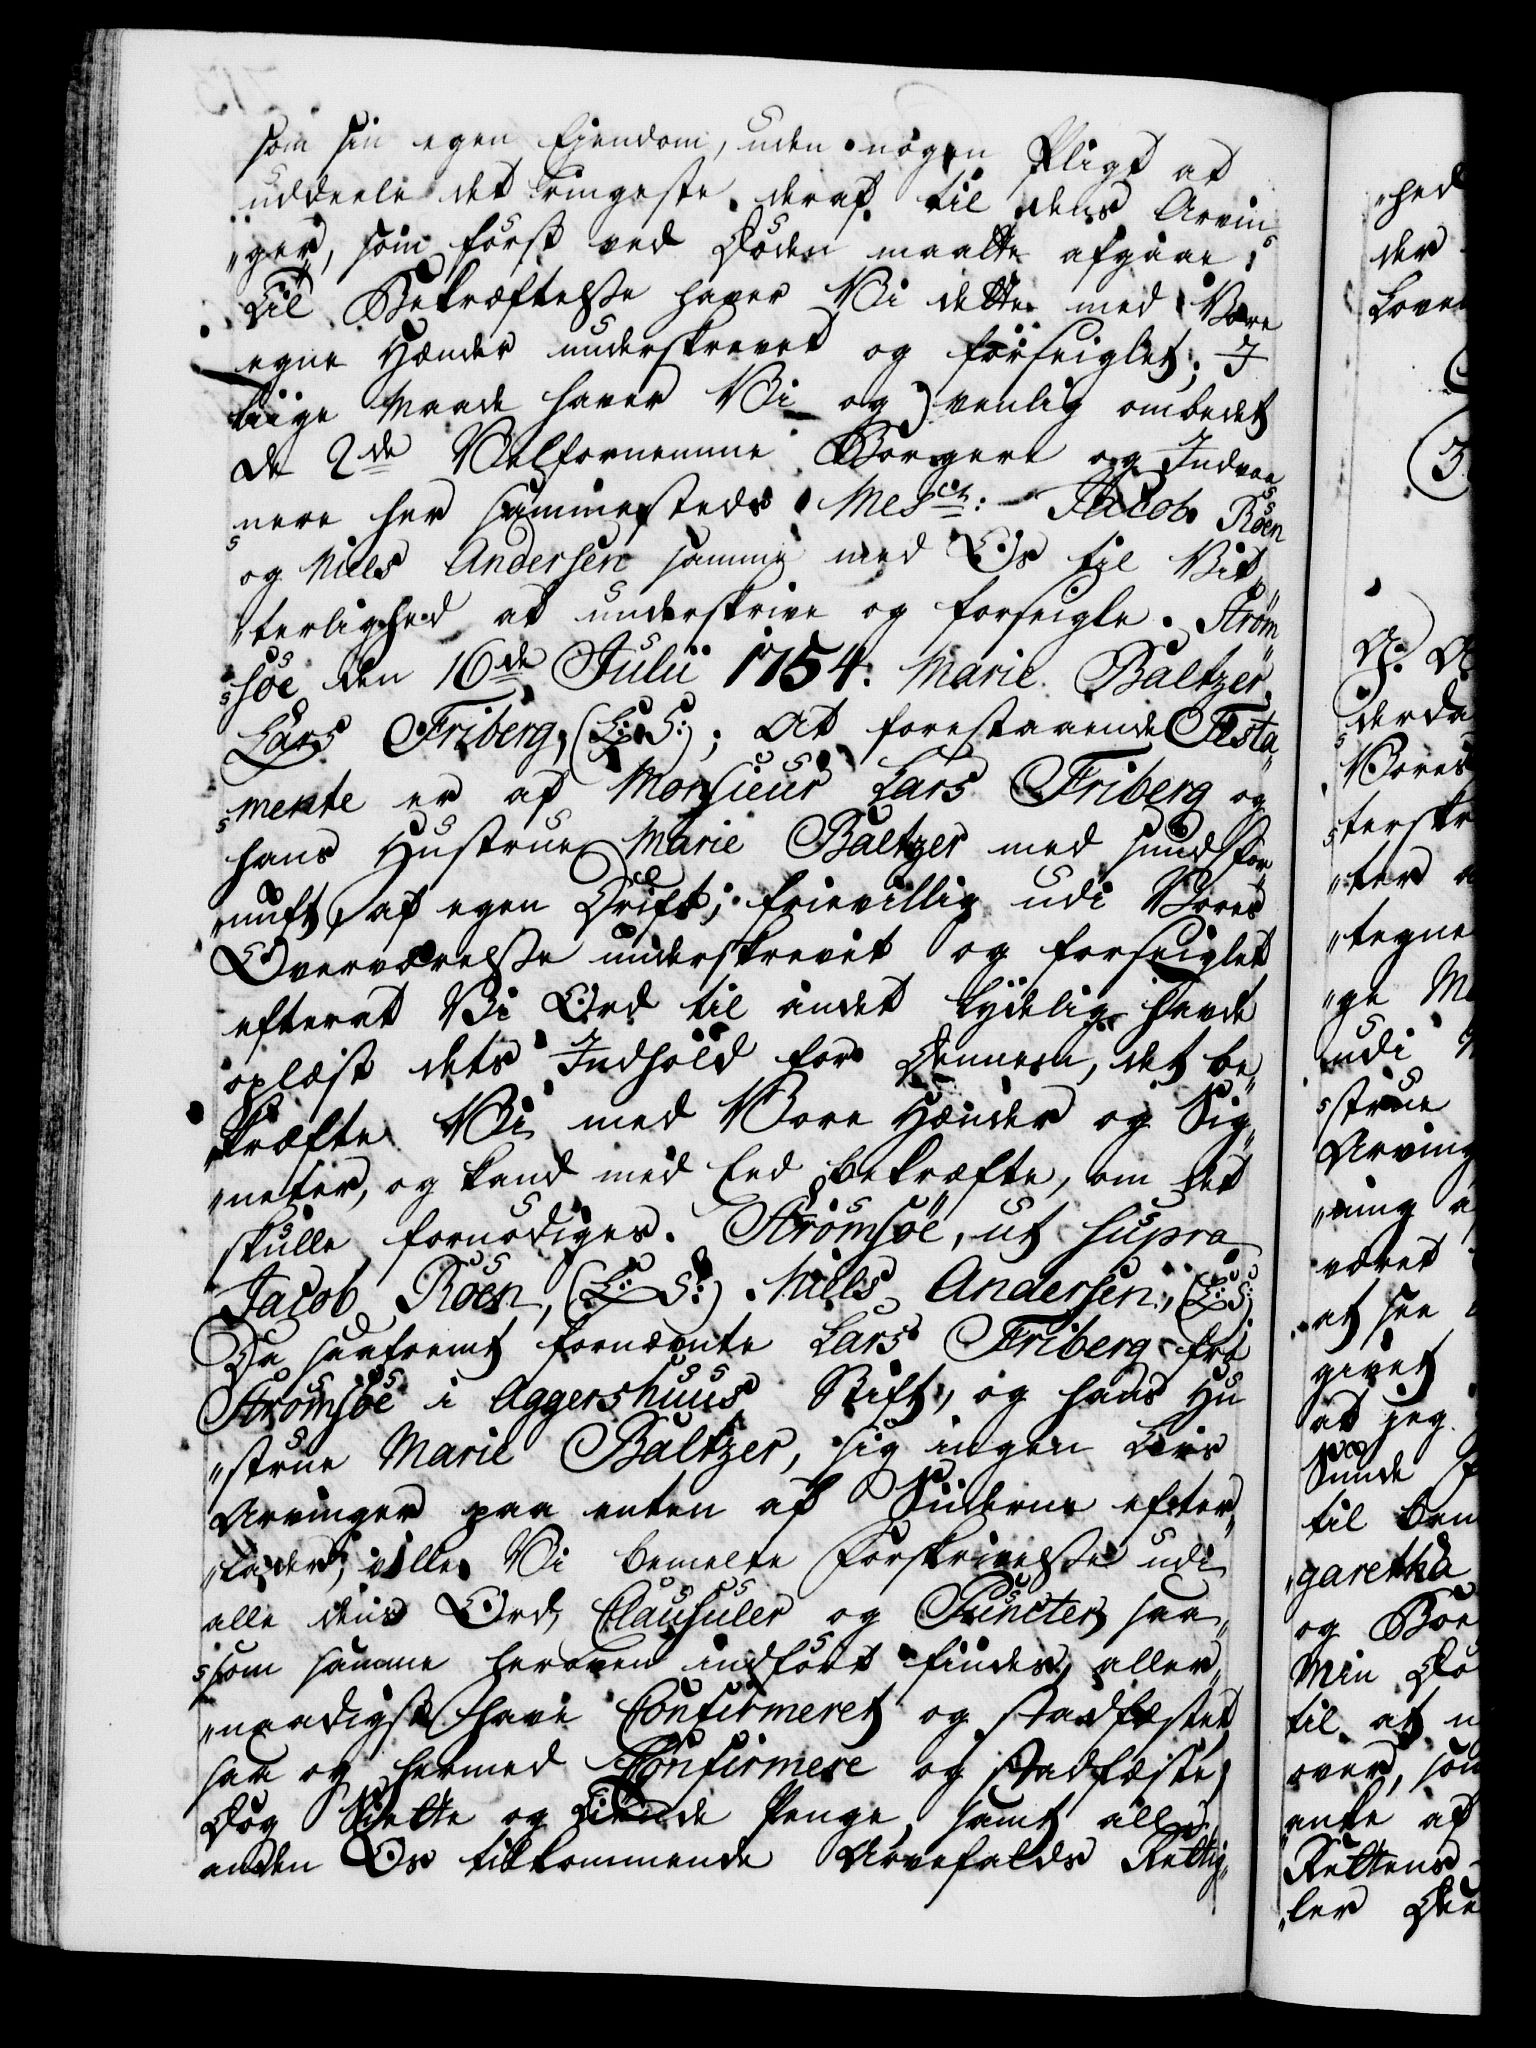 som sin egen Ejendom, uden nogen Pligt at
uddeele det ringeste deraf til dens Arvin¬
„ger, som først ved Døden maatte afgaae;
Til Bekræftelsse haver Vi dette med Vore
egne Hænder underskrevet og forseiglet; I
liige Maade haver Vi og venlig ombedet
de 2de Velfornemme Borgere og Indvaa
nere her sammesteds Mesrs: Jacob Röen
og Niels Andersen samme med Os til Vit„
„terlighed at underskrive og forseigle. Ström„
söe den 16de Julii 1754. Marie Baltzer.
Lars Friberg, (L: S:); At forestaaende Testa„
mente er af Monsieur Lars Friberg og
hans Hustrue Marie Baltzer med sund For
„nuft, af egen Drift, frievillig udi Vores
Overværelsse underskrevet og forseiglet
efterat Vi Ord til andet lydelig havde
oplæst dets Indhold for dennem, det be„
„kræfte Vi med Vore Hænder og Sig„
„neter, og kand med Eed bekræfte, om det
skulle fornødiges. Strömsöe, ut supra
Jacob Röen, (L: S:) Niels Andersen, (L: S:)
Da saafremt fornævnte Lars Friberg fra
Strömsöe i Aggershuus Stift, og hans Hu
„strue Marie Baltzer, sig ingen Livs
Arvinger paa enten af Siiderne efter„
„lader, ville Vi bemelte Forskrivelsse udi
alle dens Ord, Clausuler og Puncter, saa„
som samme heroven indført findes, aller„
„naadigst have Confirmeret og stadfæstet,
saa og hermed Confirmere og stadfæste;
Dog Siette og Tiende Penge, samt all
anden Os tilkommende Arvefalds Rettig„